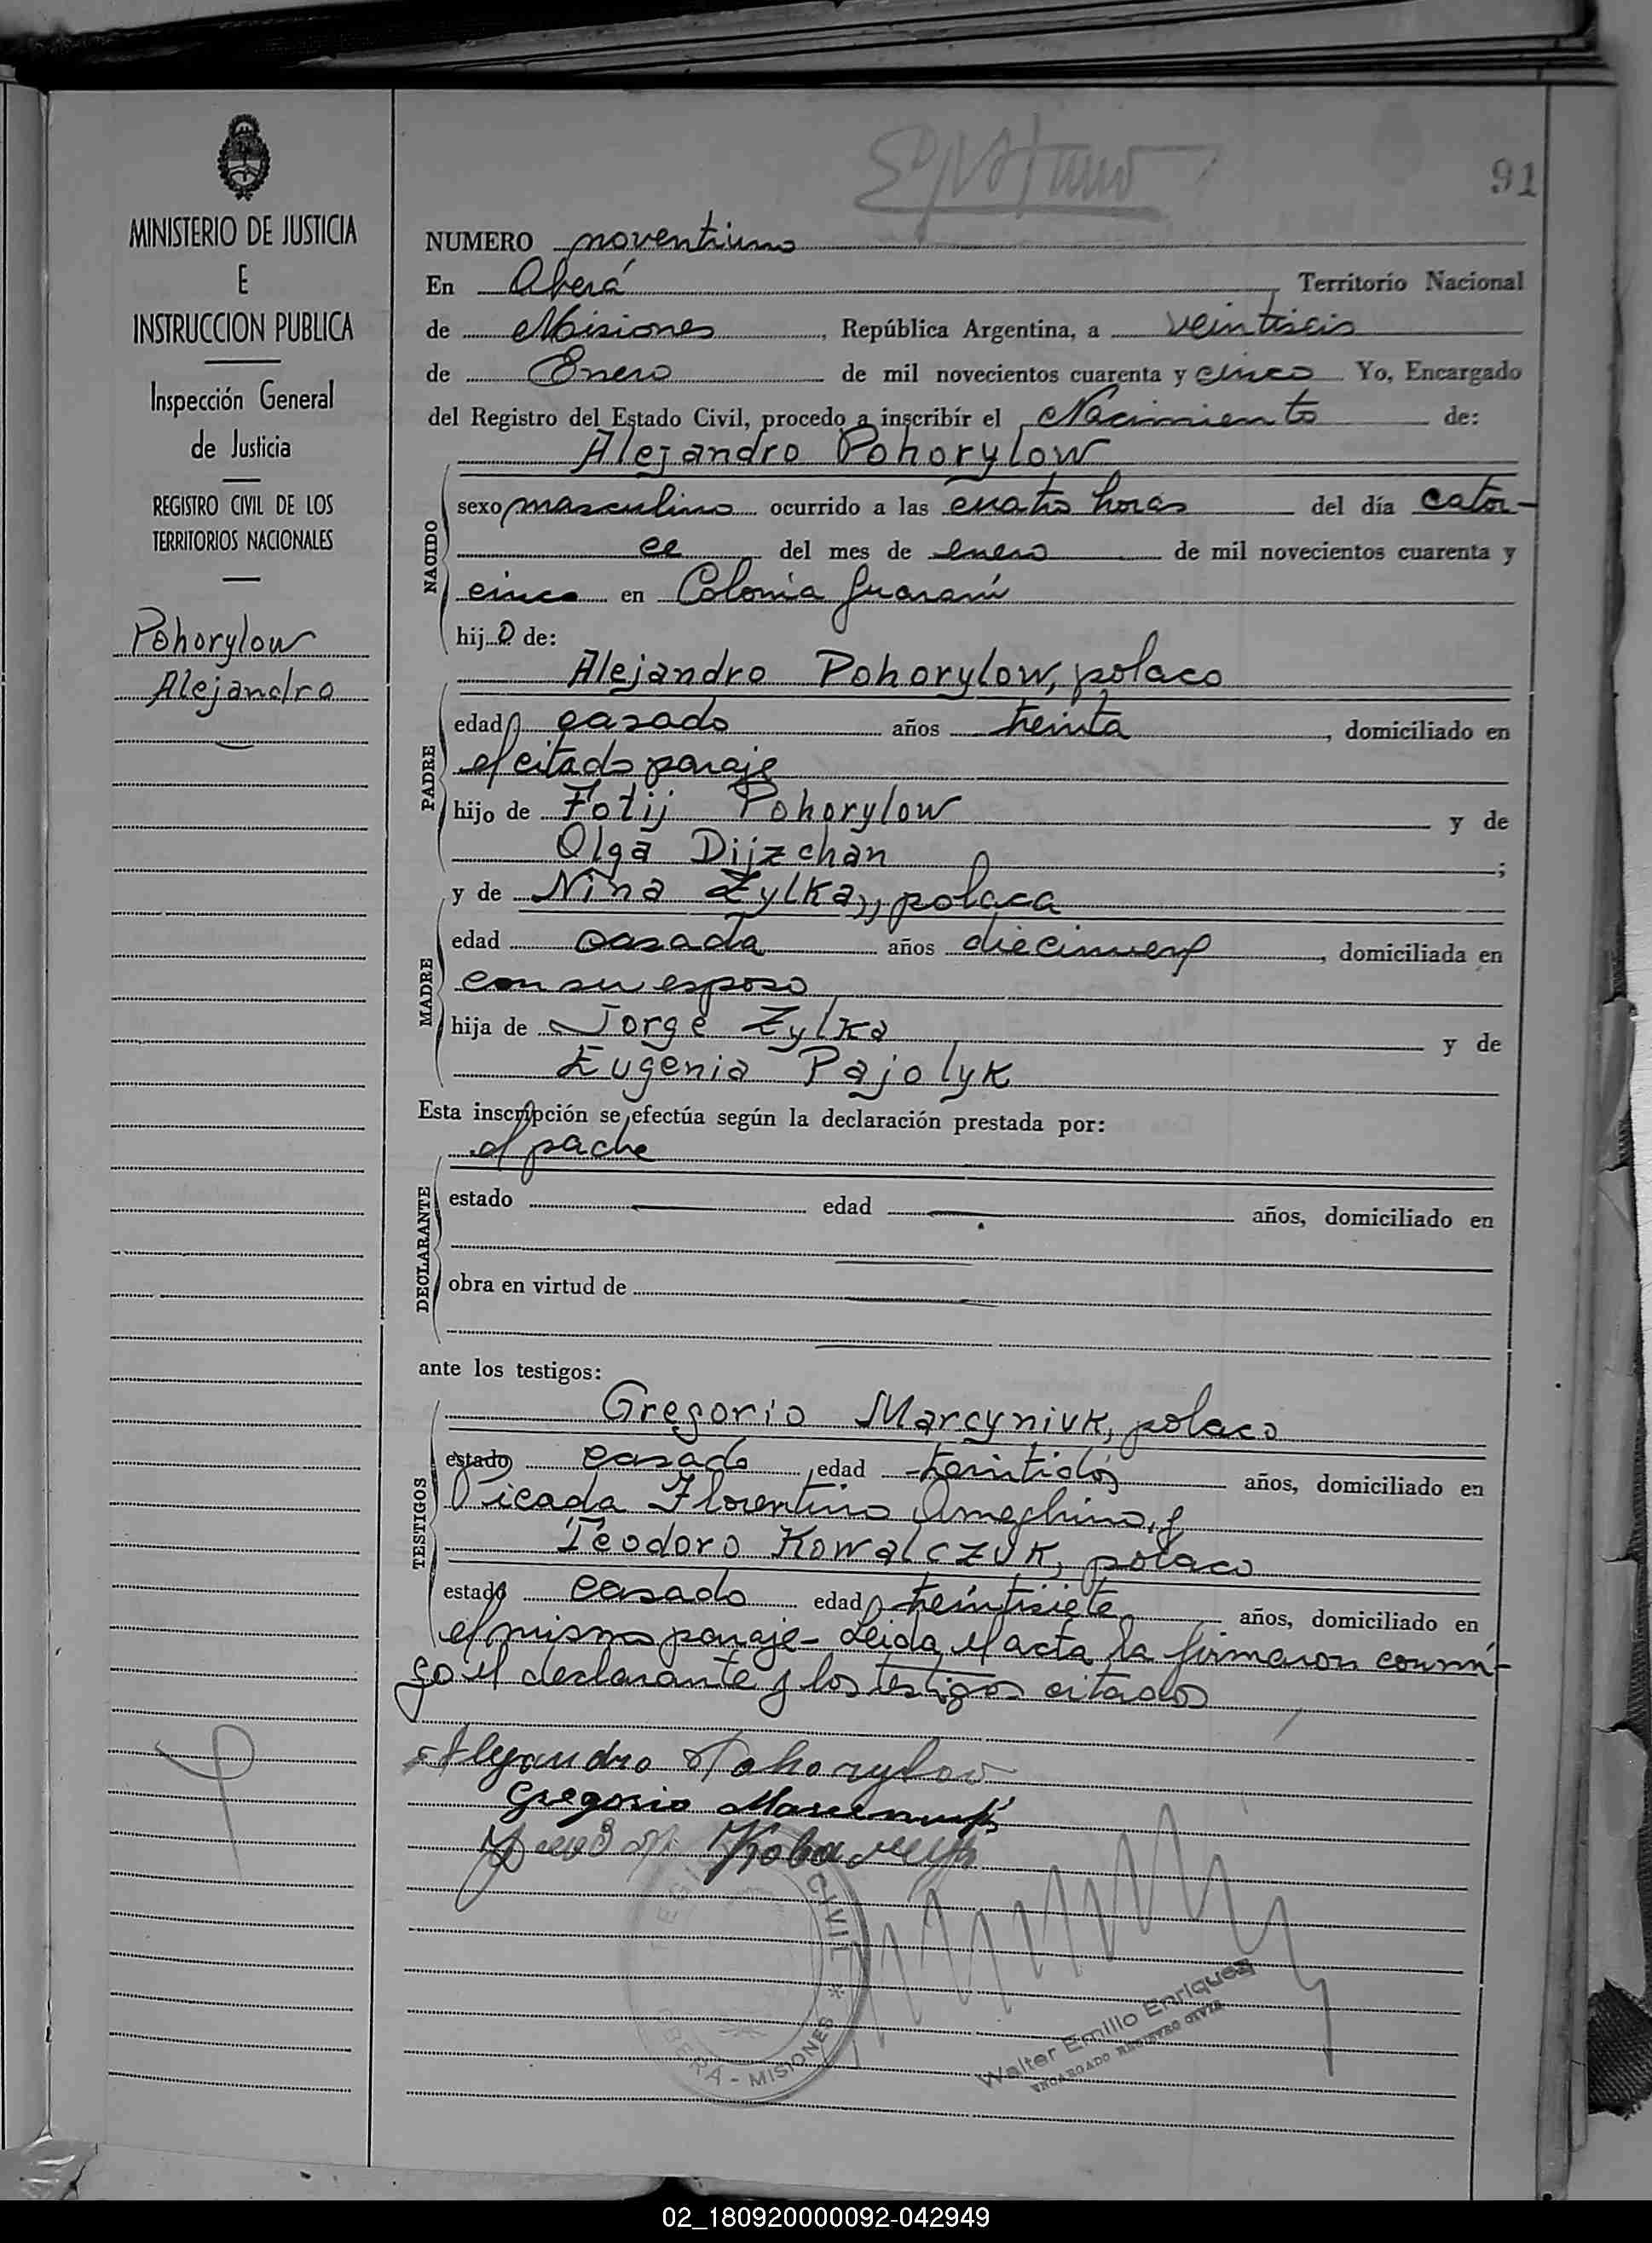 91
MINISTERIO DE JUSTICIA
E
INSTRUCCION PUBLICA
Inspección General
de Justicia
REGISTRO CIVIL DE LOS
TERRITORIOS NACIONALES
Pohorylow
Alejandro
NUMERO noventiuno
En Oberá Territorio Nacional
de Misiones, República Argentina, a veintiseis
de Enero de mil novecientos cuarenta y cinco Yo, Encargado
del Registro del Estado Civil, procedo a inscribír el Nacimiento de:
Alejandro Pohorylow
NACIDO
sexo masculino ocurrido a las cuatro horas del día cator-
ce del mes de enero de mil novecientos cuarenta y
cinco en Colonia Guaraní
hijo de:
Alejandro Pohorylow, polaco
PADRE
edad casado años treinta, domiciliado en
el citado paraje
hijo de Fotij Pohorylow y de
Olga Dijzchan;
y de Nina Zylka, polaca
MADRE
edad casada años diecinueve, domiciliada en
con su esposo
hija de Jorge Zylka y de
Eugenia Pajolyk
Esta inscripción se efectúa según la declaración prestada por:
el padre
DECLARANTE
estado edad años, domiciliado en
obra en virtud de
ante los testigos:
Gregorio Marcyniuk, polaco
TESTIGOS
estado casado edad treintidós años, domiciliado en
Picada Florentino Ameghino, y
Teodoro Kowalczuk, polaco
estado casado edad treintisiete años, domiciliado en
el mismo paraje- Leida el acta la firmaron conmi-
go el declarante y los testigos citados
Alejandro Pohorylow
Gregorio
CIVIL * OBERA - MISIONES
Walter Emilio Enriquez
ENCARGADO REGISTRO CIVIL
02_180920000092-042949